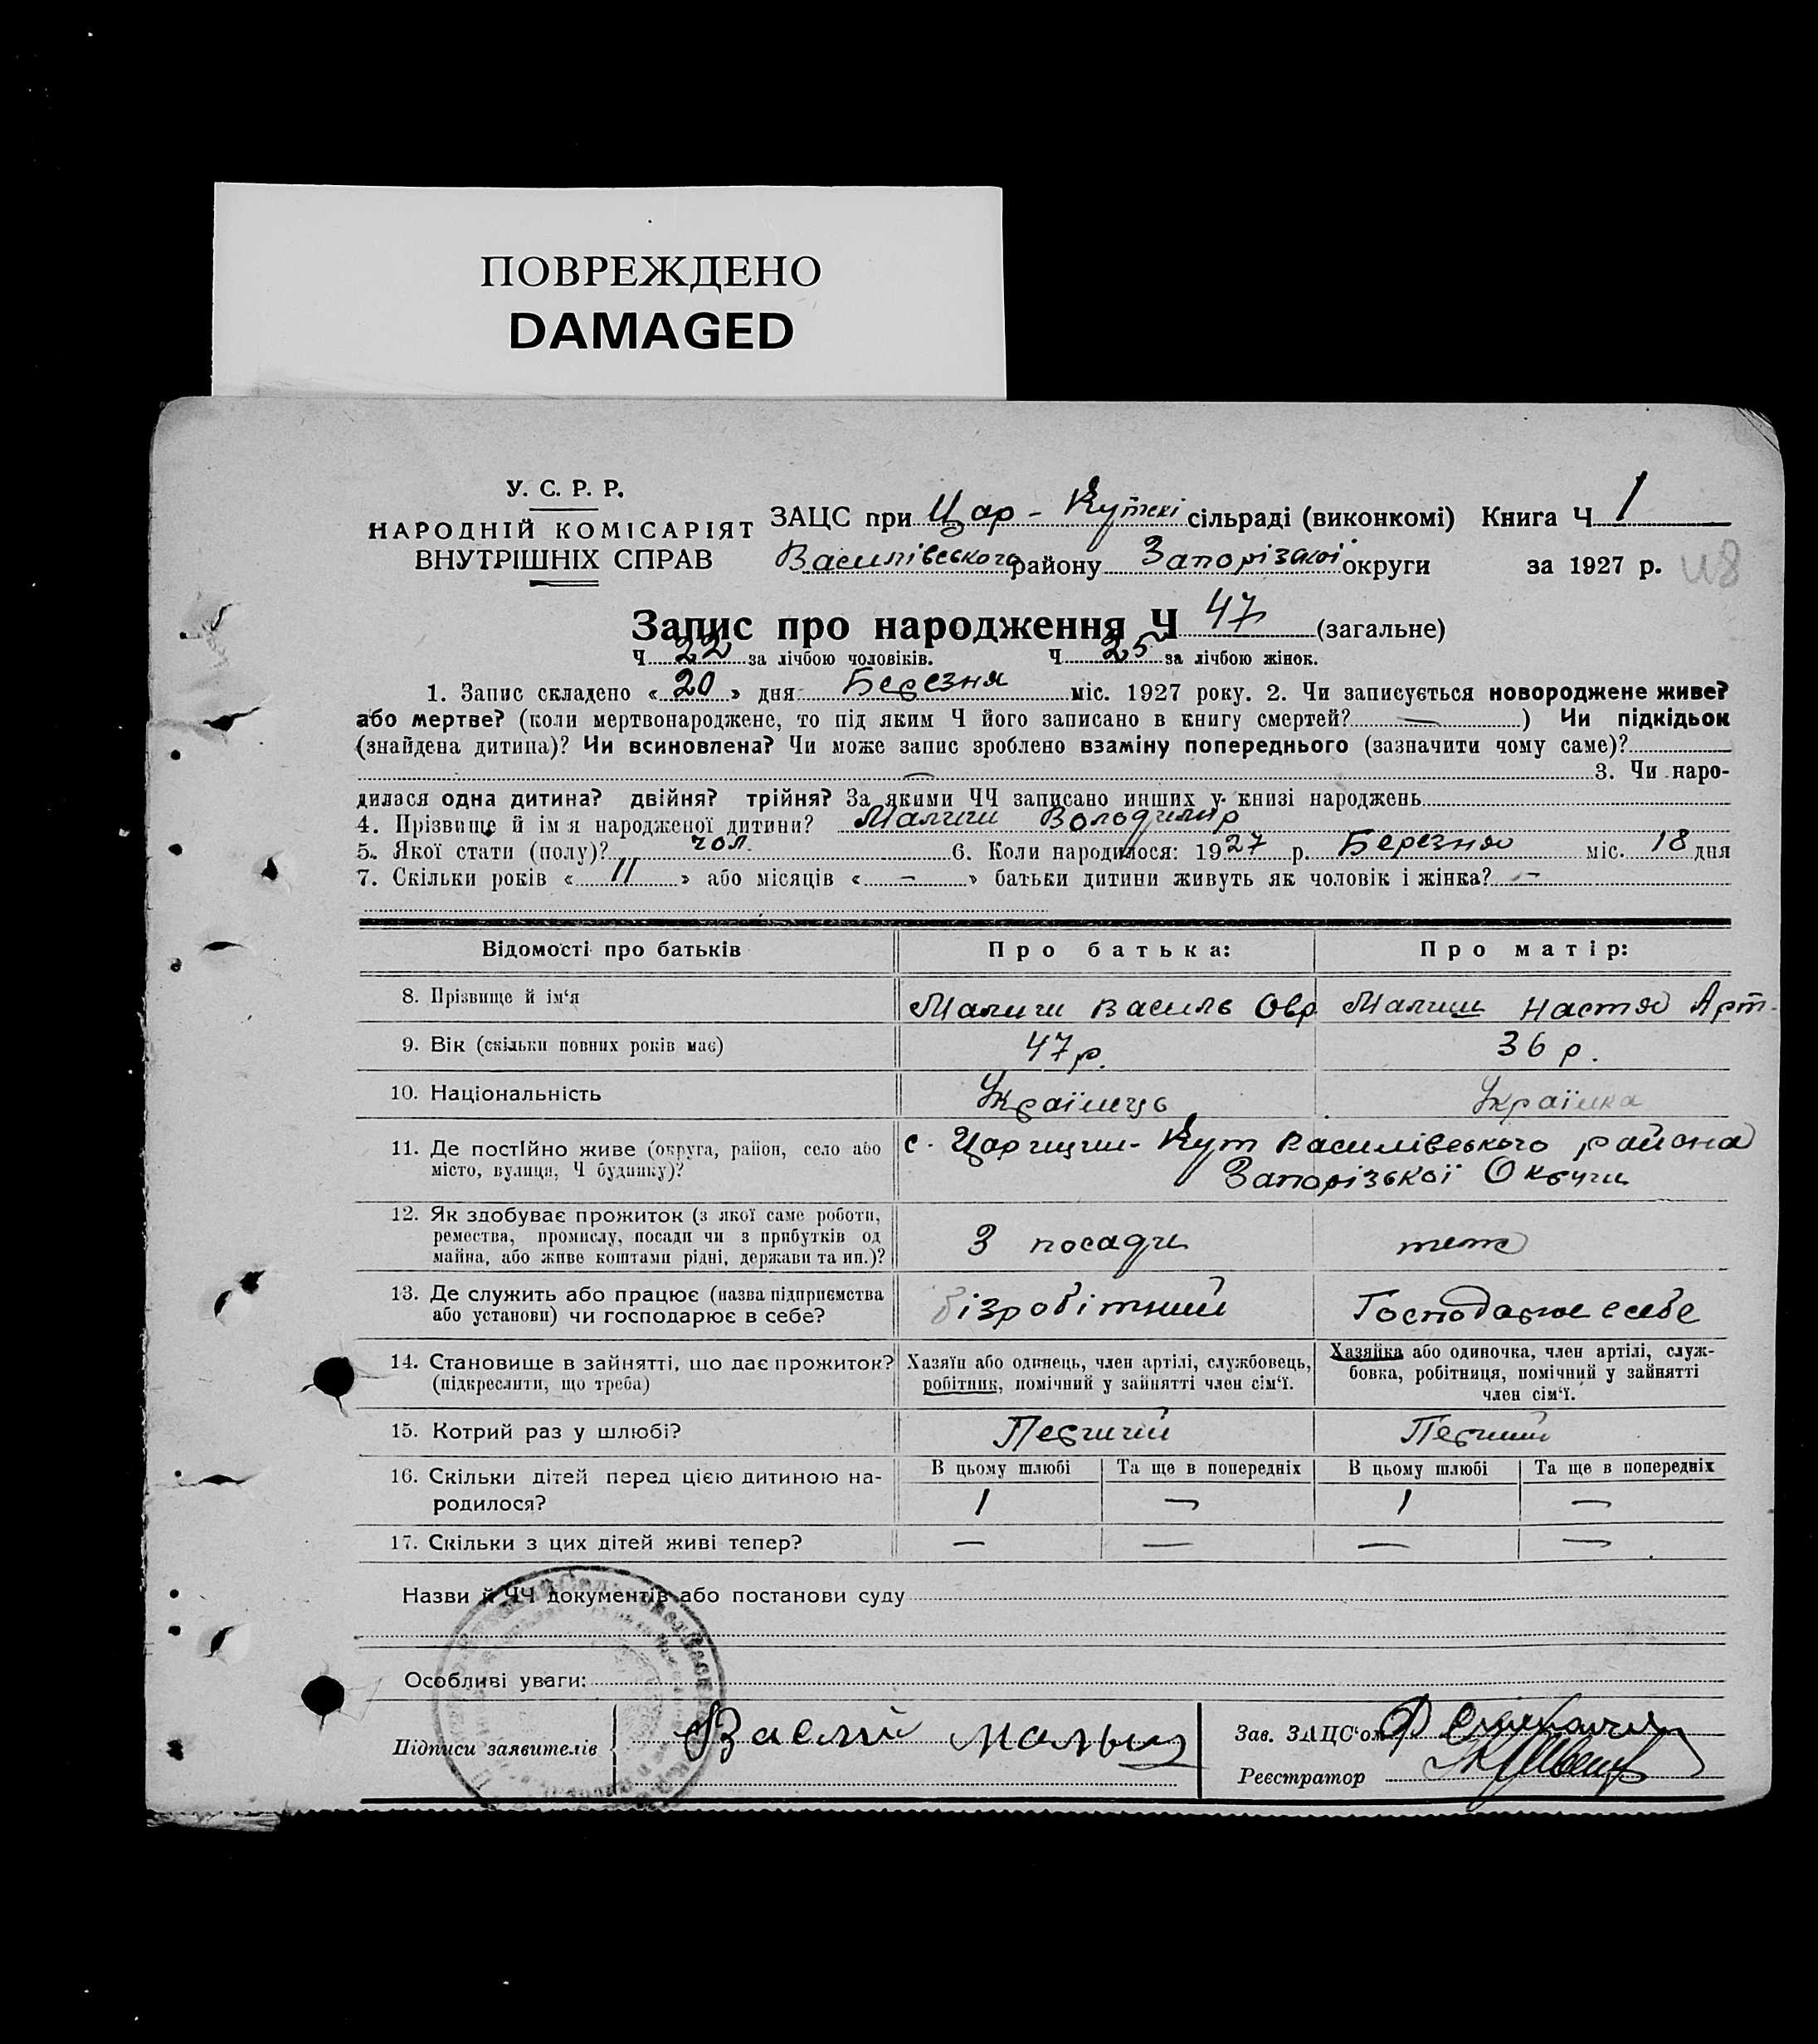 ПОВРЕЖДЕНО
DAMAGED
У. С. Р. Р.
НАРОДНІЙ КОМІСАРІЯТ
ВНУТРІШНІХ СПРАВ
ЗАЦС при Цар-Кутскі сільраді (виконкомі) Книга Ч 1
Василівського району Запорізької округи за 1927 р.
Запис про народження Ч 47 (загальне)
Ч 22 за лічбою чоловіків. Ч 25 за лічбою жінок.
1. Запис складено «20» дня Березня міс. 1927 року. 2. Чи записується новороджене живе?
або мертве? (коли мертвонароджене, то під яким Ч його записано в книгу смертей? —) Чи підкідьок
(знайдена дитина)? Чи всиновлена? Чи може запис зроблено взаміну попереднього (зазначити чому саме)?
— 3. Чи наро-
дилася одна дитина? двійня? трійня? За якими ЧЧ записано инших у книзі народжень
4. Прізвище й ім'я народженої дитини? Малиш Володимир
5. Якої стати (полу)? чол. 6. Коли народилося: 1927 р. Березня міс. 18 дня
7. Скільки років «11» або місяців «—» батьки дитини живуть як чоловік і жінка? —
Відомості про батьків Про батька: Про матір:
8. Прізвище й ім'я Малиш Василь Овр Малиш Настя Арт.
9. Вік (скільки повних років має) 47 р. 36 р.
10. Національність Українець Українка
11. Де постійно живе (округа, район, село або с. Царицин-Кут Василівського района
місто, вулиця, Ч будинку)? Запорізької Округи
12. Як здобуває прожиток (з якої саме роботи,
ремества, промислу, посади чи з прибутків од З посади теж
майна, або живе коштами рідні, держави та ин.)?
13. Де служить або працює (назва підприємства бізробітний Господарює в себе
або установи) чи господарює в себе?
14. Становище в зайнятті, що дає прожиток? Хазяїн або одинець, член артілі, службовець, Хазяйка або одиночка, член артілі, служ-
(підкреслити, що треба) робітник, помічний у зайнятті член сім'ї. бовка, робітниця, помічний у зайнятті
член сім'ї.
15. Котрий раз у шлюбі? Перший Перший
16. Скільки дітей перед цією дитиною на- В цьому шлюбі Та ще в попередніх В цьому шлюбі Та ще в попередніх
родилося? 1 — 1 —
17. Скільки з цих дітей живі тепер? — — — —
Назви й ЧЧ документів або постанови суду
Особливі уваги:
Підписи заявителів Василій Малыш Зав. ЗАЦС'ом
Реєстратор